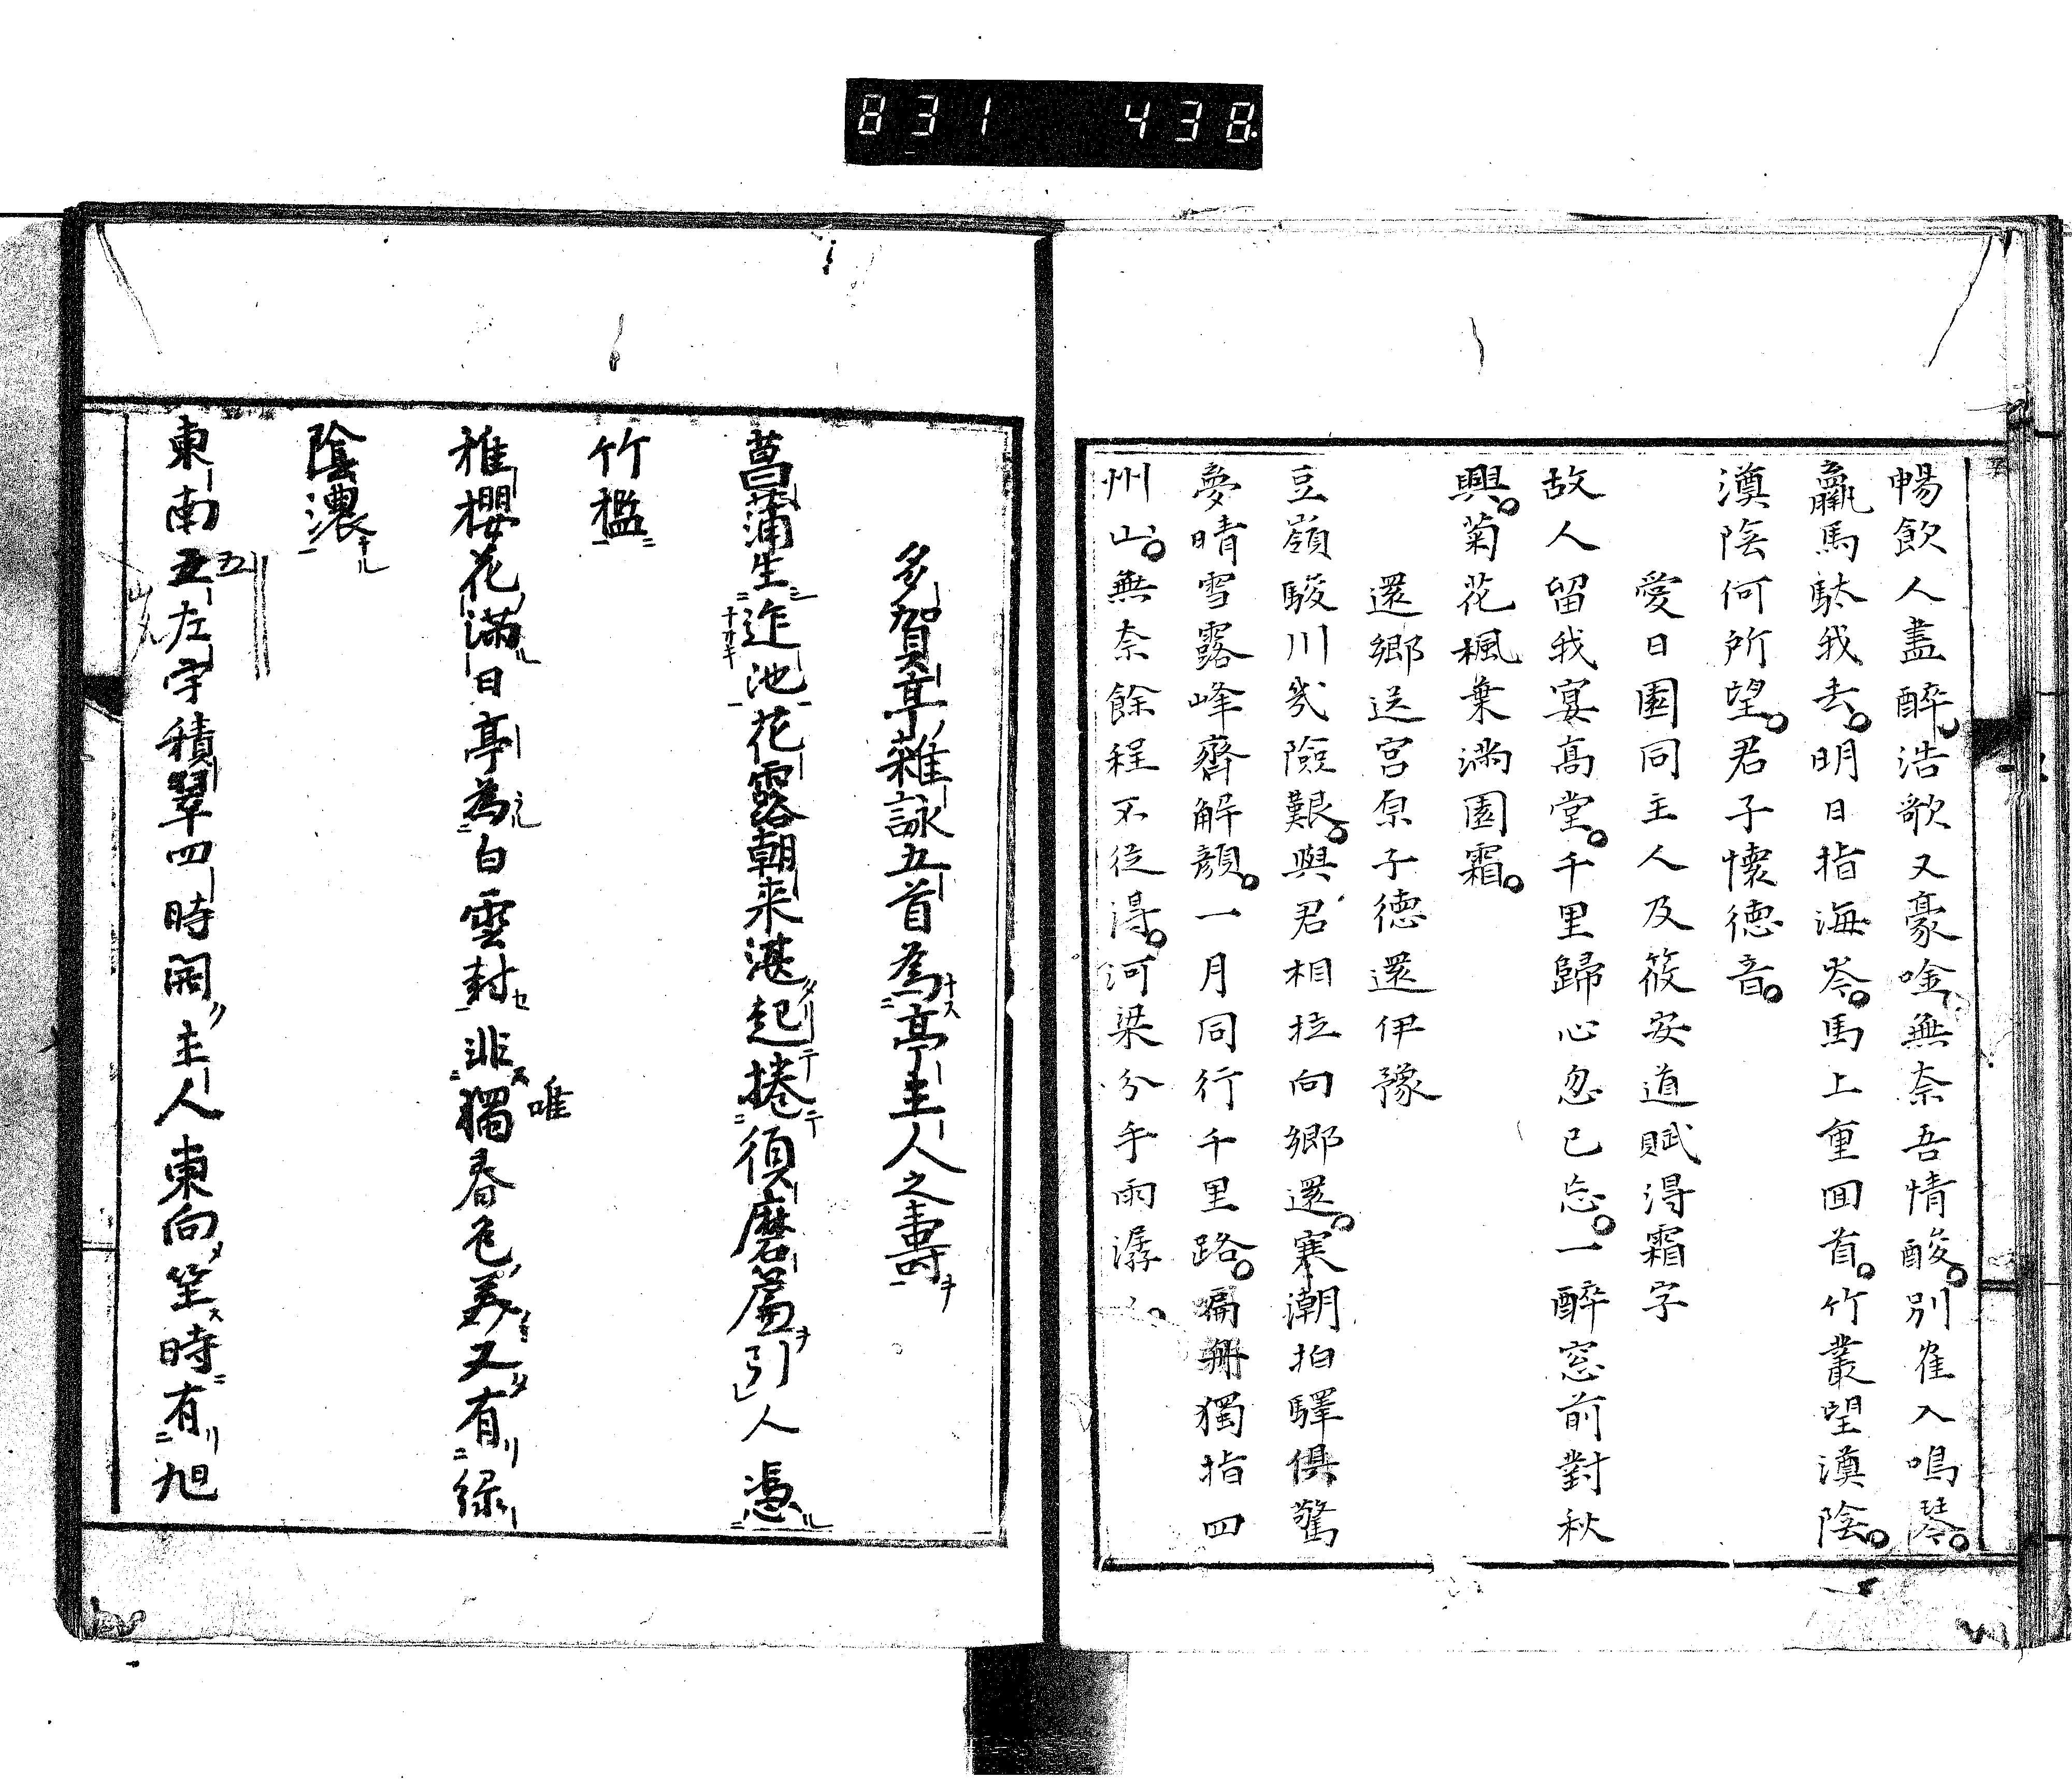 831 438
暢飲人盡醉浩歌又豪唫無奈吾情酸別隺入鳴琴
羸馬駄我去明日指海岑馬上重回首竹叢望漢陰
漢陰何所望君子懷德音
愛日園同主人及筱安道賦得霜字
故人留我宴高堂千里歸心忽已忘一醉窓前對秋
興菊花楓葉滿園霜
還鄉送宮原子德還伊豫
豆嶺駿川幾險艱與君相拉向鄉還寒潮拍驛俱驚
夢晴雪露峰齊解顏一月同行千里路扁舟獨指四
州山無奈餘程不從得河梁分手雨潺〻
多賀亭雜詠五首為亭主人之壽
菖蒲生迮池花露朝来湛起捲須磨簾引人憑
竹檻
稚櫻花滿日亭為白雲封非獨春色美又有緑
唯
陰濃
東南五左宇積翠四時開主人東向坐時有旭
五